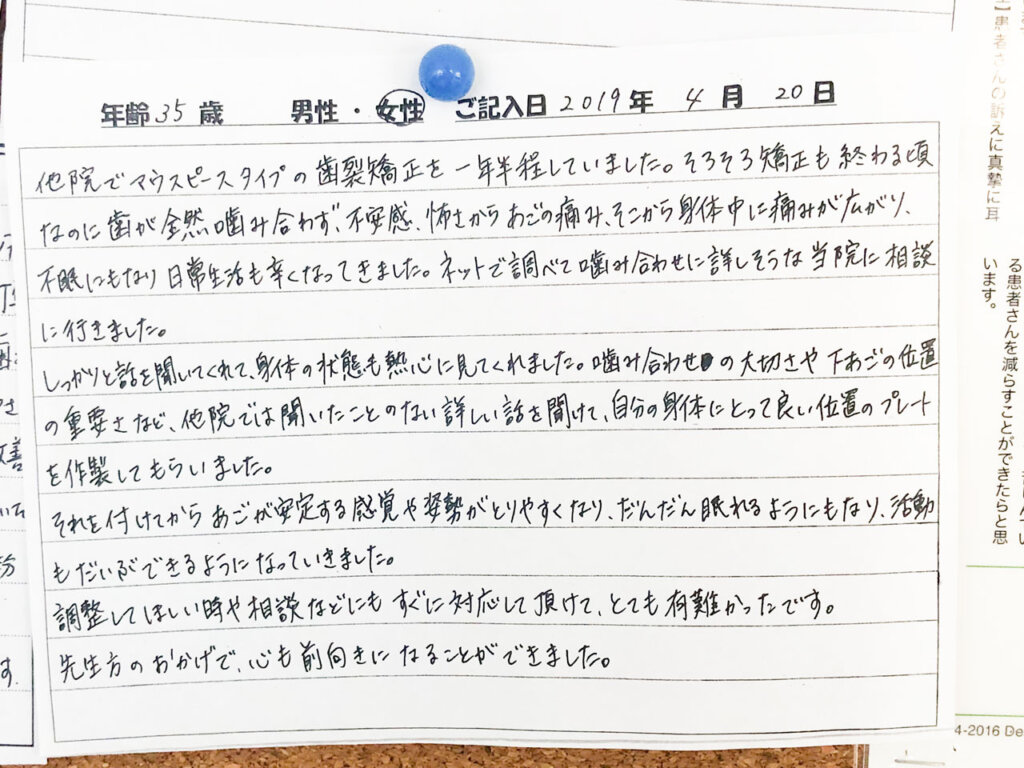 年齢 35 歳 男性・女性 ご記入日 2019 年 4 月 20 日
他院でマウスピースタイプの歯裂矯正を一年半程していました。そろそろ矯正も終わる頃
なのに歯が全然噛み合わず、不安感、怖さからあごの痛み、そこから身体中に痛みが広がり、
不眠にもなり日常生活も辛くなってきました。ネットで調べて噛み合わせに詳しそうな当院に相談
に行きました。
しっかりと話を聞いてくれて、身体の状態も熱心に見てくれました。噛み合わせの大切さや下あごの位置
の重要さなど、他院では聞いたことのない詳しい話を聞けて、自分の身体にとって良い位置のプレート
を作製してもらいました。
それを付けてからあごが安定する感覚や姿勢がとりやすくなり、だんだん眠れるようにもなり、活動
もだいぶできるようになっていきました。
調整してほしい時や相談などにもすぐに対応して頂けて、とても有難かったです。
先生方のおかげで、心も前向きになることができました。
患者さんの訴えに真摯に耳
る患者さんを減らすことができたらと思
います。
4-2016 De